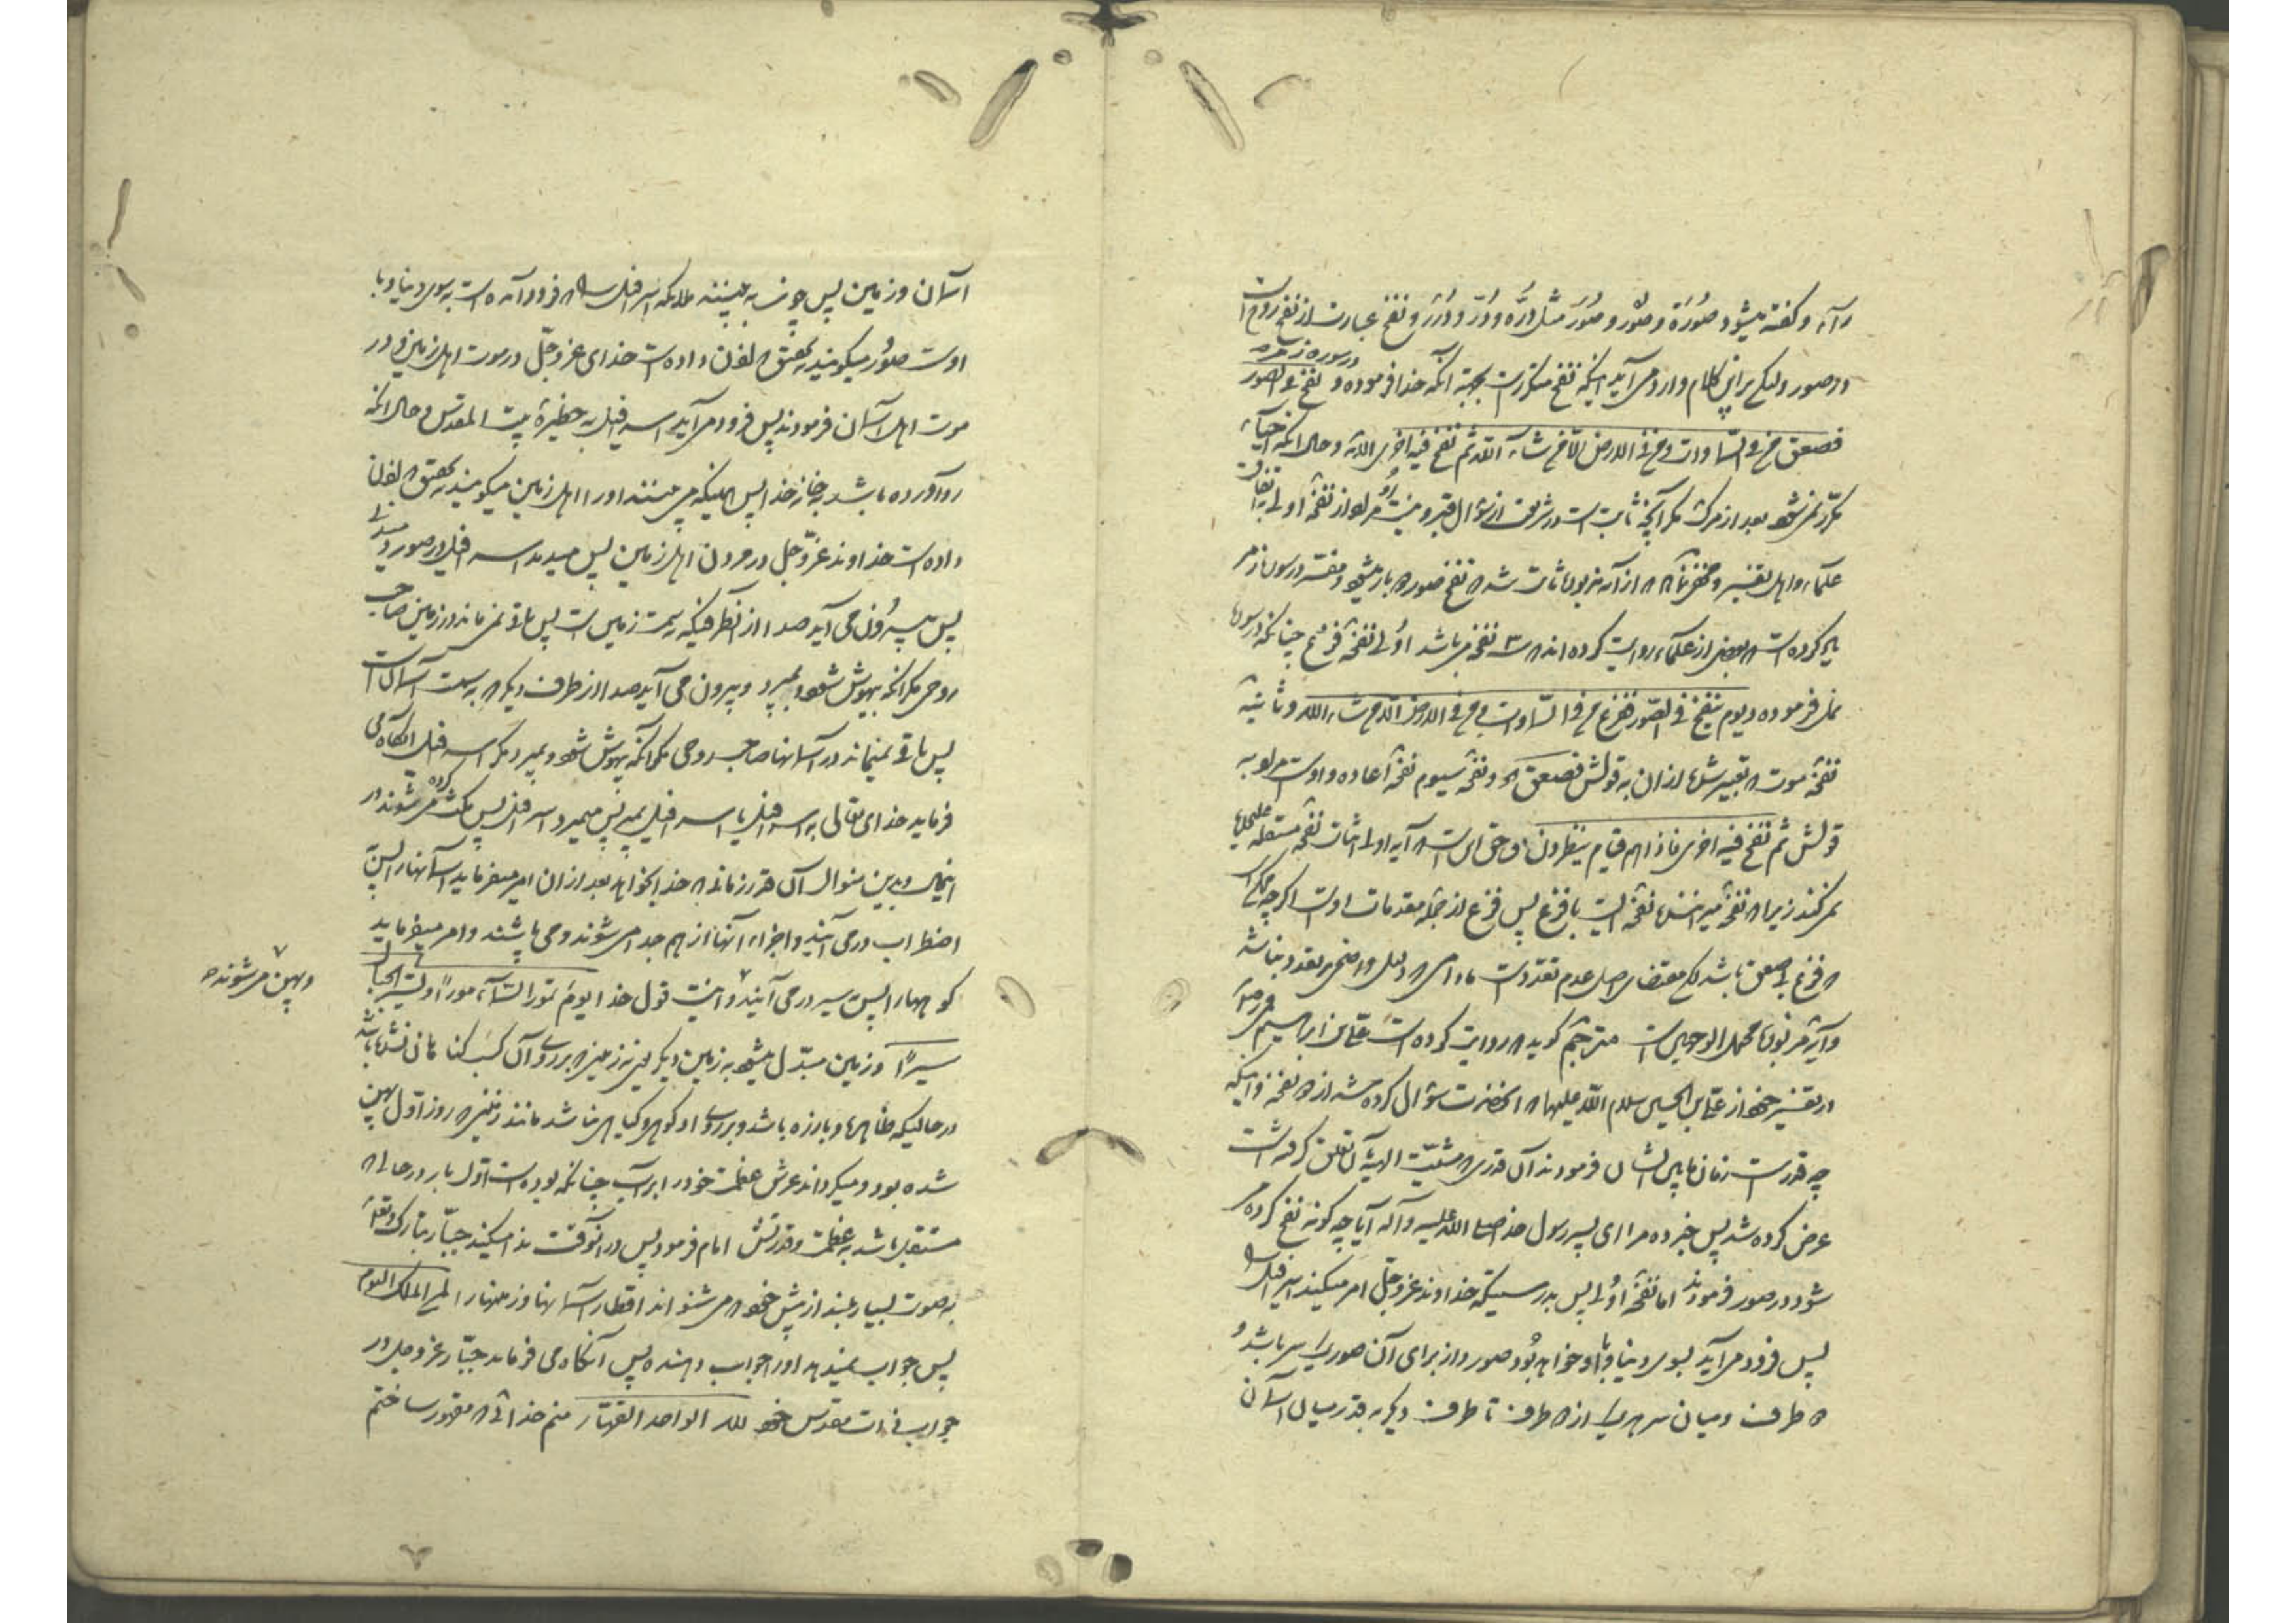 راء و گفته میشود صُورَة و صُور و صُوَر مثل دُرّه و دُرّ و دُرَر و نفخ عبارت از نفخ روح است
در صور ولیکن براین کلام وارد می آید اینکه نفخ متکرر است بجهة آنکه خدا فرموده در سوره زمر و نفخ فی الصور
فصعق من فی السماوات و من فی الارض الا من شاء الله ثم نفخ فیه اخری الآیه و حال آنکه احیاء
مکرر نمی شود بعد از مرگ مگر آنچه ثابت است در شریعت از سؤال قبر و نیست مراد از نفخه اولی به اتفاق
علماء و اهل تفسیر و مخفی نماند که از آیه مزبوره ثابت شد که نفخ صور دو بار میشود و مفسر در سوره زمر
کرده است که بعضی از علماء روایت کرده اند که سه نفخه می باشد اولی نفخه فزع چنانکه در سوره
نمل فرموده و یوم ینفخ فی الصور ففزع من فی السماوات و من فی الارض الا من شاء الله و ثانیه
نفخه موت که تعبیر شده از ان به قولش فصعق الخ و نفخه سیوم نفخه اعاده و اوست مراد به
قولش ثم نفخ فیه اخری فاذا هم قیام ینظرون و حق این است که آیه اولی اثبات نفخه مستقله علیحده
نمی کند زیرا که نفخه میراننده نفخه ایست با فزع پس فزع از جمله مقدمات اوست اگرچه ممکن است
که فزع بی صعق باشد لکن مقتضای اصل عدم تعدد است مادامی که دلیل واضحی بر تعدد نباشد
و آیه مزبوره محتمل الوجهین است مترجم گوید که روایت کرده است علی بن ابراهیم
در تفسیر خود از علی بن الحسین سلام الله علیهما که آنحضرت سؤال کرده شد از دو نفخه و اینکه
چه قدر است زمان مابین ایشان فرمودند آن قدری که مشیت الهیه به آن تعلق گرفته است
عرض کرده شد پس خبر ده مرا ای پسر رسول خدا صلی الله علیه و آله آیا چه گونه نفخ کرده می
شود در صور فرمودند اما نفخه اولی پس بدرستیکه خداوند عز و جل امر میکند اسرافیل را
پس فرود می آید بسوی دنیا و با او خواهد بود صور و از برای آن صور یک سر باشد و
دو طرف و میان سر هر یک از دو طرف تا طرف دیگر به قدر میان آسمان
آسمان و زمین پس چون به بینند ملائکه اسرافیل را که فرود آمده است به سوی دنیا و با
اوست صور میگویند به تحقیق که اذن داده است خدای عز و جل در موت اهل زمین و در
موت اهل آسمان فرمودند پس فرود می آید اسرافیل به حظیرهٔ بیت المقدس و حال آنکه
رو آورده باشد به خانه خدا پس همینکه می بینند او را اهل زمین میگویند به تحقیق که اذن
داده است خداوند عز و جل در مردن اهل زمین پس میدمد اسرافیل در صور دمیدنی
پس بیرون می آید صدا از آن طرفیکه به سمت زمین است پس باقی نمی ماند در زمین صاحب
روحی مگر آنکه بیهوش شود و بمیرد و بیرون می آید صدا از طرف دیگر که به سمت آسمان است
پس باقی نمیماند در آسمانها صاحب روحی مگر آنکه بیهوش شود و بمیرد مگر اسرافیل آنگاه می
فرماید خدای تعالی به اسرافیل یا اسرافیل بمیر پس میمیرد اسرافیل پس مکث کرده می شوند در
اینحال و بدین منوال آن قدر زمانی که خدا بخواهد بعد از ان امر میفرماید آسمانها را پس
اضطراب در می آیند و اجزاء آنها از هم جدا می شوند و می پاشند و امر میفرماید
کوهها را پس به سیر در می آیند و اینست قول خدا یوم تمور السماء مورا و تسیر الجبال
و پهن می شوند
سیرا و زمین مبدل میشود به زمین دیگر یعنی زمینی که بر روی آن کسب گناهانی نشده باشد
در حالیکه ظاهر و بارزه باشد و بر روی او کوهی و گیاهی نباشد مانند زمینی که روز اول پهن
شده بود و میگرداند عرش عظمت خود را بر آب چنانکه بوده است اول بار در حالی که
مستقل باشد به عظمت و قدرتش امام فرمود پس در آنوقت ندا میکند جبار تبارک و تعالی
به صوت بسیار بلند از پیش خود که می شنواند اقطار آسمانها و زمینها را لمن الملک الیوم
پس جواب نمیدهد او را جواب دهنده پس آنگاه می فرماید جبار عز و جل در
جواب ذات مقدس خود لله الواحد القهار منم خدائی که مقهور ساختم